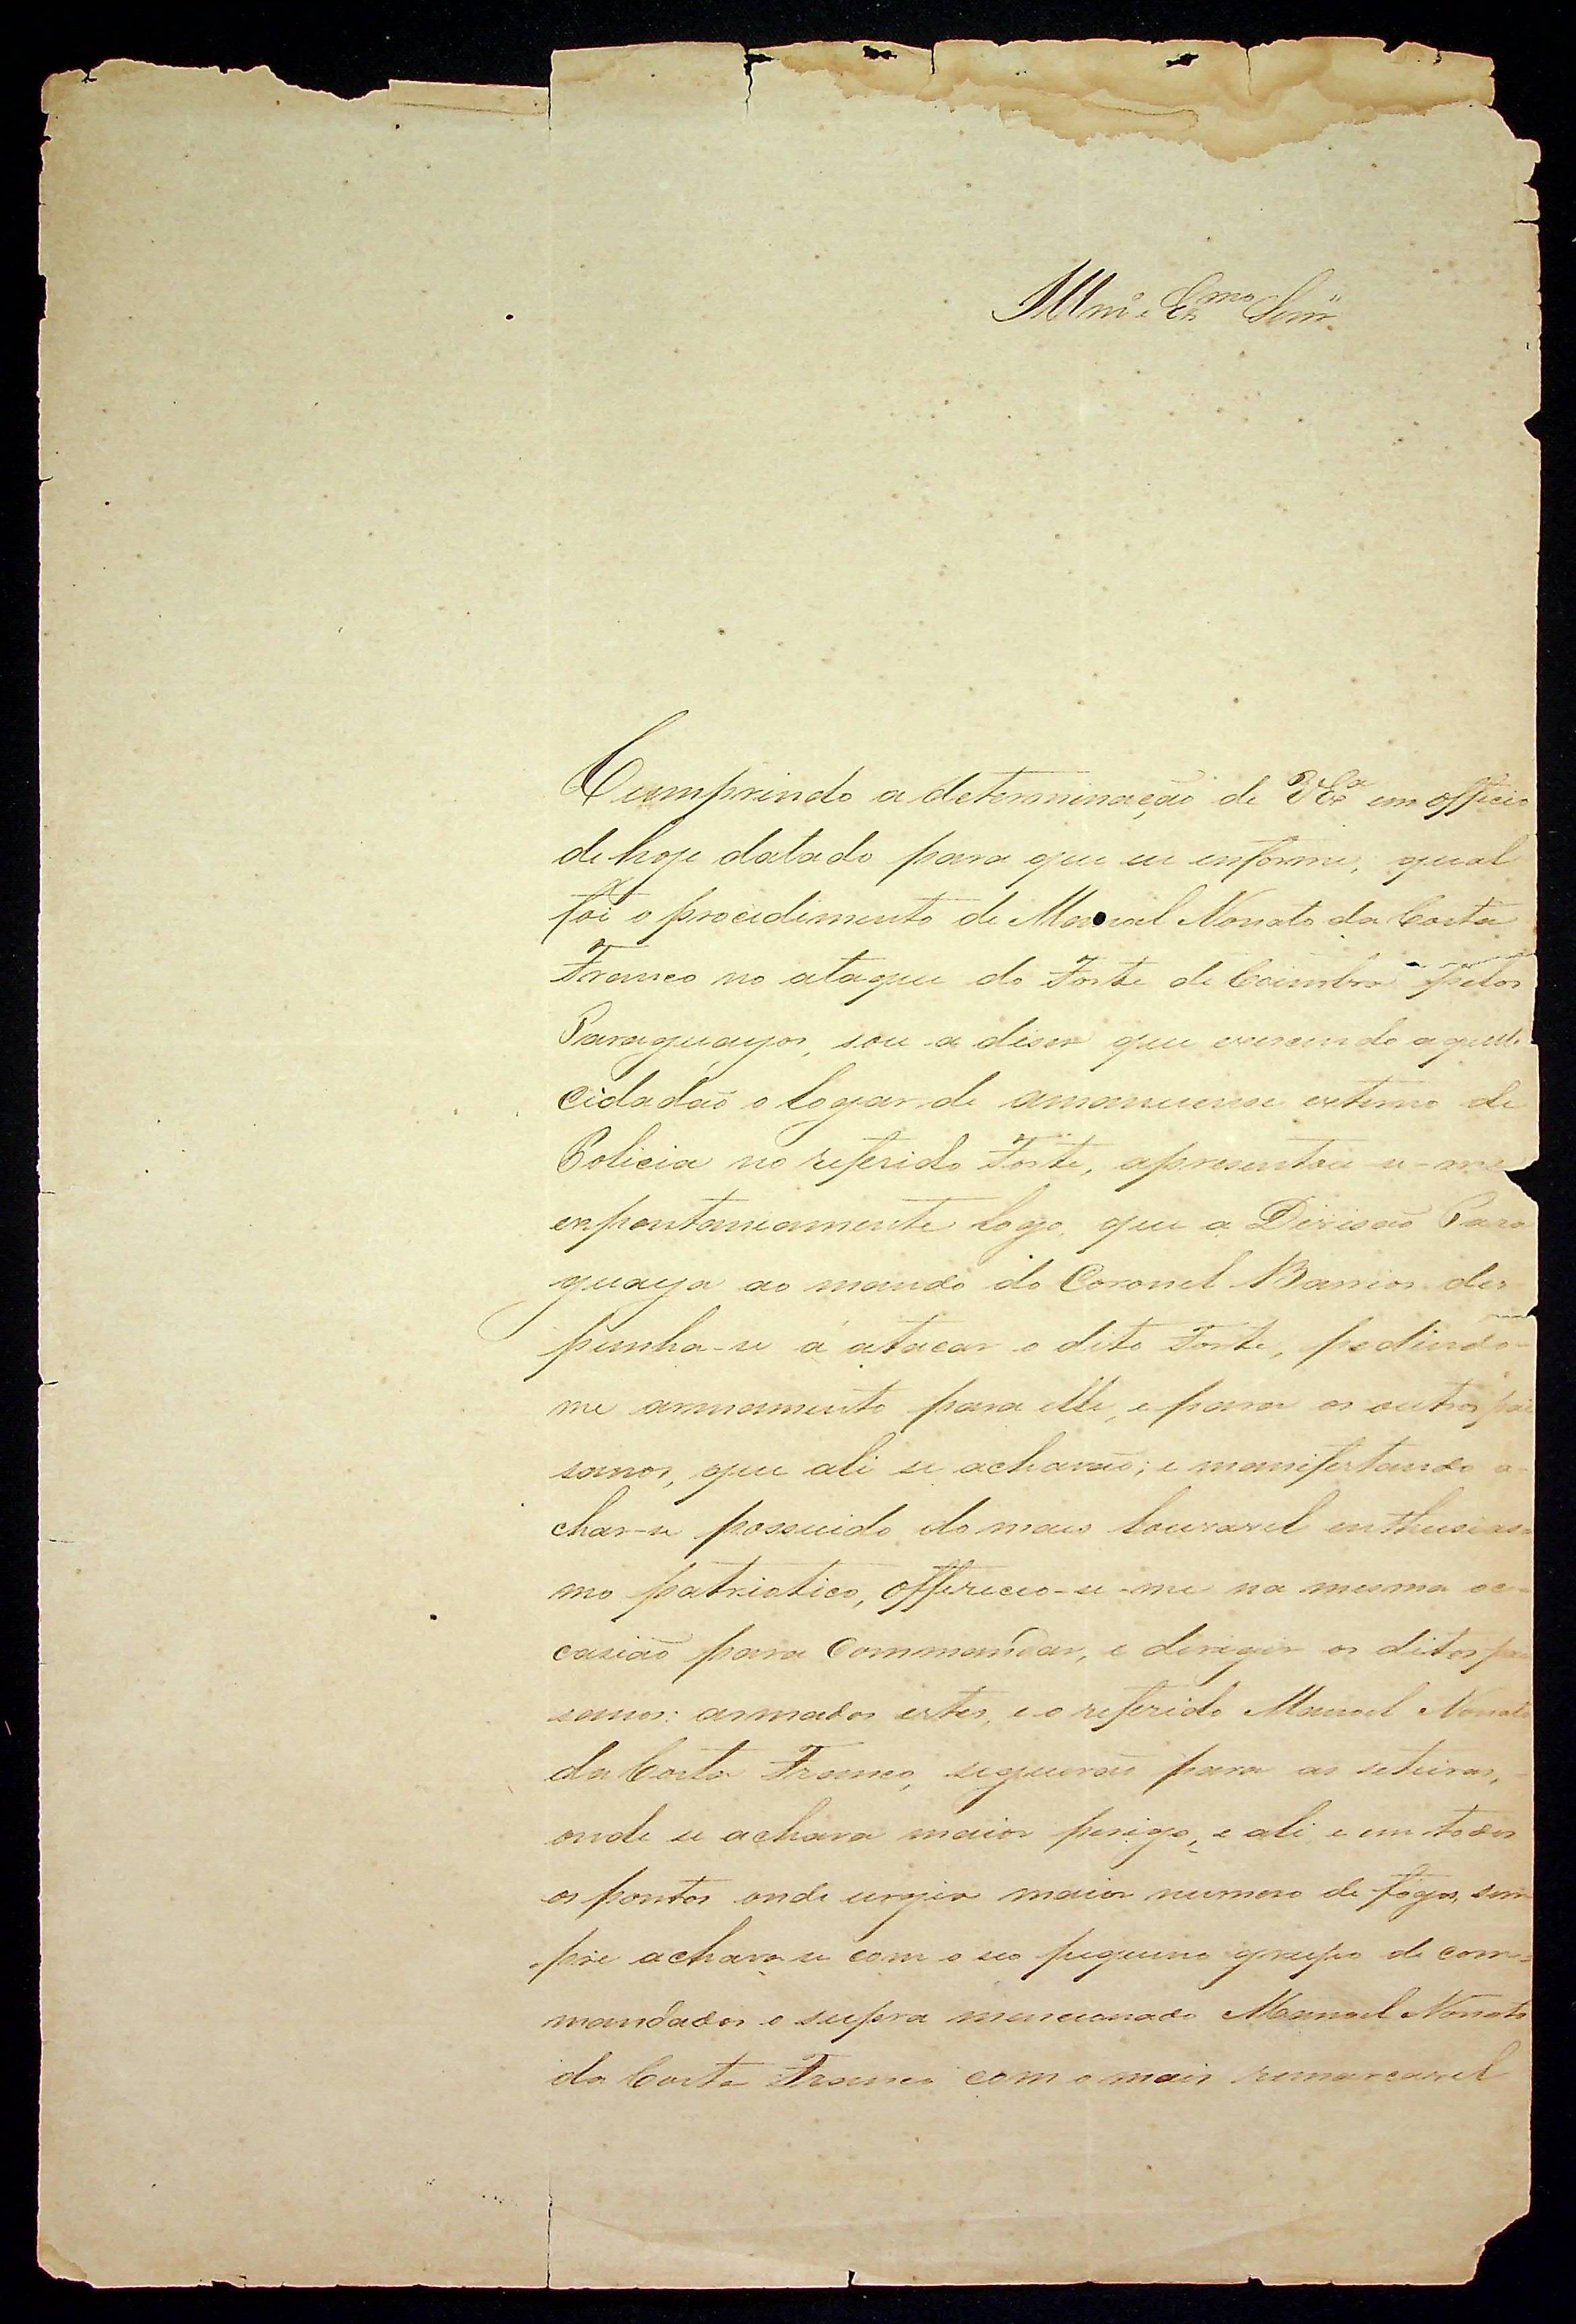 Illmº e Exmo Senr
Cumprindo a determinação de V Exa em officio
de hoje datado para que eu informe, qual
foi o procedimento de Manoel Nonato da Costa
Franco no ataque do Forte de Coimbra pelos
Paraguayos, sou a diser que exercendo aquelle
cidadão o logar de amanuense externo de
Policia no referido Forte, apresentou-se-me
espontaniamente logo, que a Divisão Para
guaya ao mando do Coronel Barrios des
punha-se á atacar o dito Forte, pedindo-
me armamento para elle, e para os outros pai
sanos, que ali se achavão; e manifestando a-
char-se possuido do mais louvavel enthusias
mo patriotico, offereceo-se-me na mesma oc-
casião para Commandar, e derigir os ditos pai
sanos: armados estes, e o referido Manoel Nonato
da Costa Franco, seguirão para as seteiras,
onde se achava maior perigo, e ali, e em todos
os pontos onde urgia maior numero de fogos, sem
pre achava-se com o seo pequeno grupo de com-
mandados o supra mencionado Manoel Nonato
da Costa Franco com o mais remarcavel